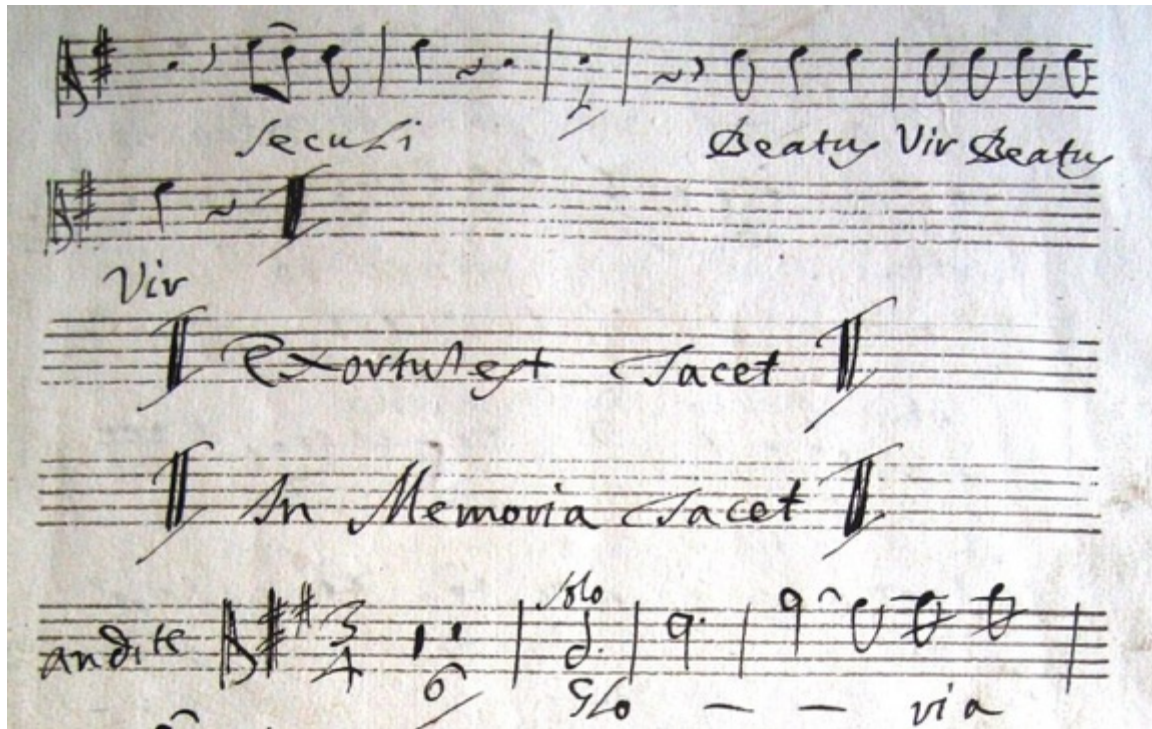 seculi Beatus Vir Beatus
Vir
Exortus est Tacet
In Memoria Tacet
Solo
andite 3 4 6 Glo — — ria